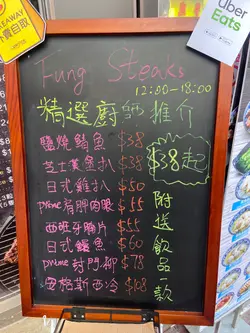 AKEAWAY
外賣自取
Uber
Eats
Fung Steaks
12:00-18:00
精選廚師推介
鹽燒鯖魚 $38
芝士漢堡扒 $38
日式雞扒 $50
prime肩胛肉眼 $55
西班牙豚片 $55
日式鰻魚 $60
prime封門柳 $78
安格斯西冷 $108
$38起
附送飲品一款